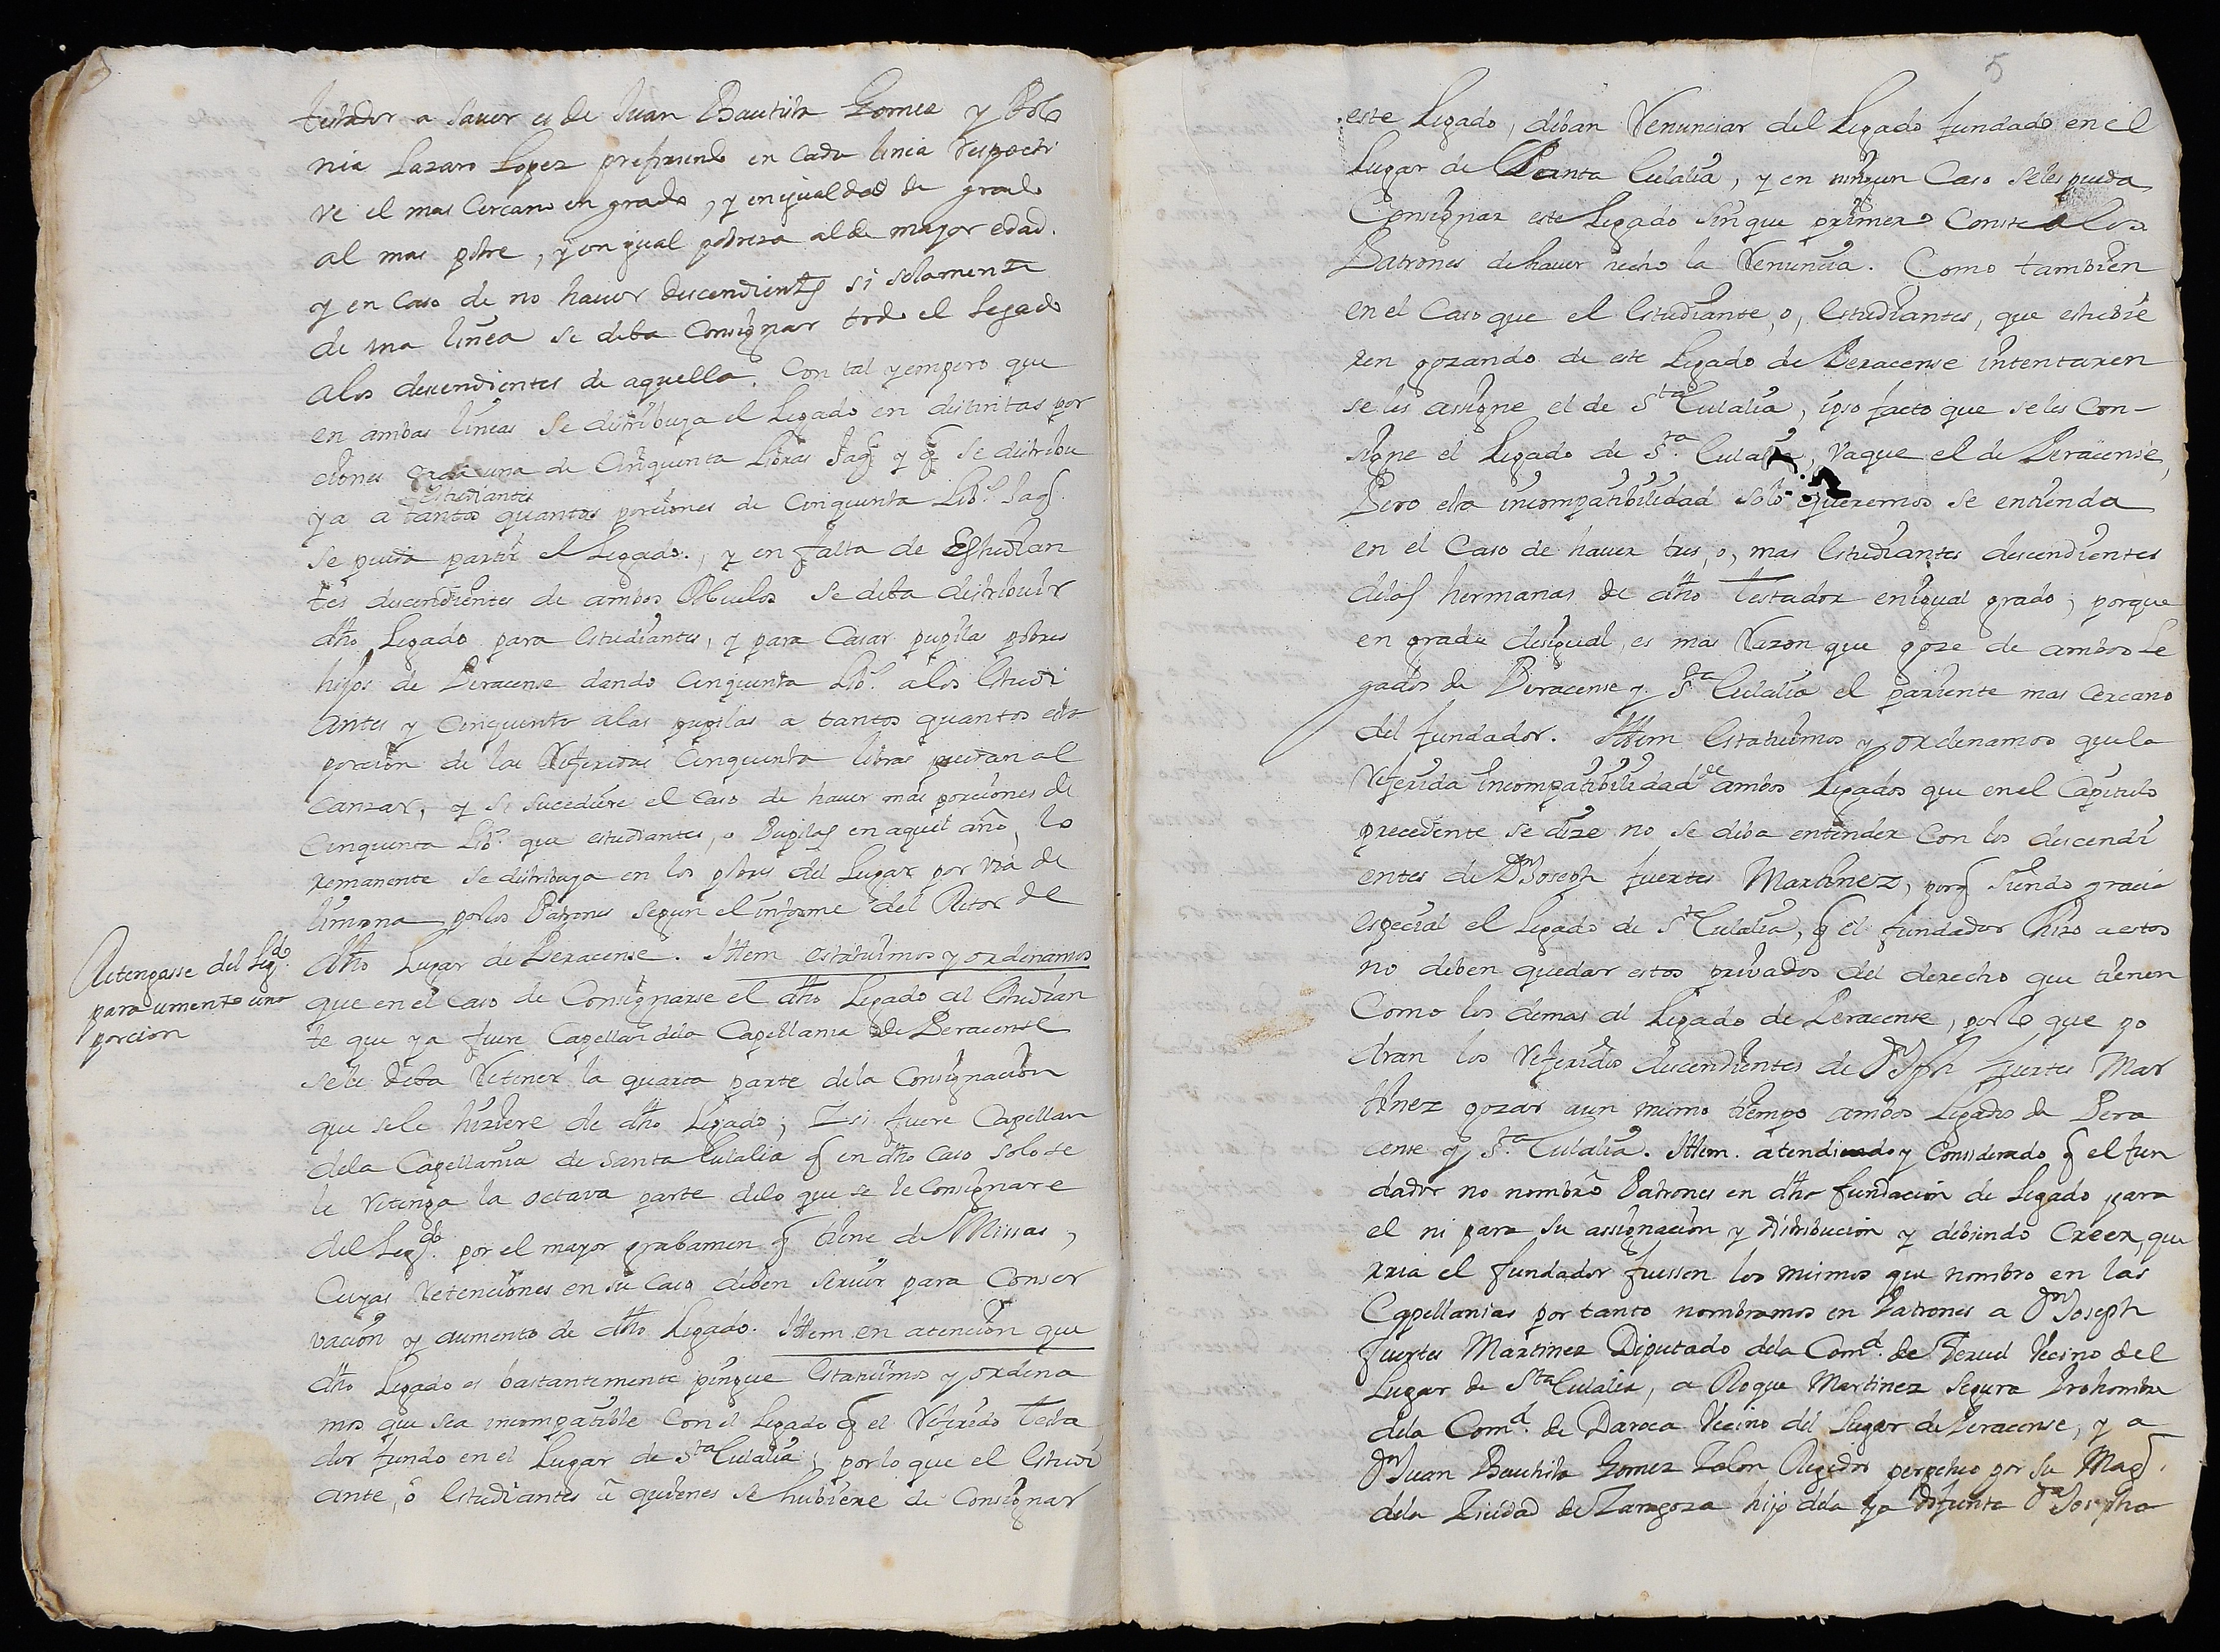 testador a saver es de Juan Bautista Gomez y Polo
nia Lazaro Lopez prefiriendo en cada linia respecti
ve el mas Cercano en grado, y en igualdad de grado
al mas pobre, y en igual pobreza al de mayor edad.
y en Caso de no haver descendientes si solamente
de una linea se deba Consignar todo el Legado
a los descendientes de aquella. Con tal y empero que
en ambas lineas se distribuya el Legado en distintas por
ciones cada una de Cinquenta Libras Jaq.s y q.e se distribu
estudiantes
ya a tantos quantas porciones de Cinquenta Lib.s Jaq.s
se pueda partir el Legado., y en falta de Estudian
tes descendientes de ambos Abuelos se deba distribuir
dho Legado para estudiantes, y para Casar pupilas pobres
hijos de Peracense dando Cinquenta Lib.s a los Estudi
antes y Cinquenta a las pupilas a tantos quantos esta
porcion de las Referidas Cinquenta libras puedan al
canzar, y si sucediere el Caso de haver mas porciones de
Cinquenta Lib.s que estudiantes, o Pupilas en aquel año, lo
remanente se distribuya en los pobres del Lugar por via de
limosna por los Patrones segun el informe del Retor de
dho Lugar de Peracense. Ittem estatuimos y ordenamos
Retengasse del Leg.do
para umento una
porcion
que en el Caso de Consignarse el dho Legado al Estudian
te que ya fuere Capellan dela Capellania de Peracense
sele deba Retener la quarta parte dela Consignacion
que sele hiziere de dho Legado; Y si fuere Capellan
dela Capellania de Santa Eulalia q.e en dho Caso solo se
le Retenga la octava parte delo que se le Consignare
del Leg.do por el mayor grabamen q.e tiene de Missas,
Cuyas Retenciones en su Caso deben servir para Conser
vacion y aumento de dho Legado. Ittem en atencion que
dho Legado es bastantemente pingue Estatuimos y ordena
mos que sea incompatible Con el Legado q.e el Referido Testa
dor fundo en el Lugar de S.ta Eulalia, por lo que el Estudi
ante, ô Estudiantes â quienes se hubiere de Consignar
5
este Legado, deban Renunciar del Legado fundado en el
Lugar de Santa Eulalia, y en ningun Caso se les pueda
Consignar este Legado sin que primero Conste a los
Patrones de haver hecho la Renuncia. Como tambien
en el Caso que el Estudiante, o, Estudiantes, que estubie
ren gozando de este Legado de Peracense intentaren
se les assigne el de S.ta Eulalia, ipso facto que se les Con-
signe el Legado de S.ta Eulalia, vaque el de Peracense,
Pero esta incompatibilidad solo queremos se entienda
en el Caso de haver tres, o, mas Estudiantes descendientes
delas hermanas de dho Testador en igual grado, porque
en grado desigual, es mas Razon que goze de ambos Le
gados de Peracense y S.ta Eulalia el pariente mas cercano
del fundador. Ittem Estatuimos y ordenamos que la
Referida incompatibilidad de ambos Legados que en el Capitulo
precedente se dize no se deba entender Con los descendi
entes de Dn Joseph fuertes Martinez, porq.e siendo gracia
especial el Legado de S.ta Eulalia, q.e el fundador hizo a estos
no deben quedar estos privados del derecho que tienen
Como los demas al Legado de Peracense, por lo que po
dran los Referidos descendientes de Dn Jph fuertes Mar
tinez gozar a un mismo tiempo ambos Legados de Pera
cense y S.ta Eulalia. Ittem. atendiendo y Considerado q.e el fun
dador no nombrò Patrones en dha fundacion de Legado para
el ni para su assignacion y distribucion y debiendo Creer, que
rria el fundador fuessen los mismos que nombro en las
Capellanias por tanto nombramos en Patrones a Dn Joseph
fuertes Martinez Diputado dela Com.d de Teruel Vecino del
Lugar de Sta Eulalia, a Roque Martinez Segura Prohombre
dela Com.d de Daroca Vecino del Lugar de Peracense, y a
Dn Juan Bautista Gomez Tolon Regidor perpetuo por su Mag.d
dela Ziudad de Zaragoza hijo dela ya difunta Da Josepha